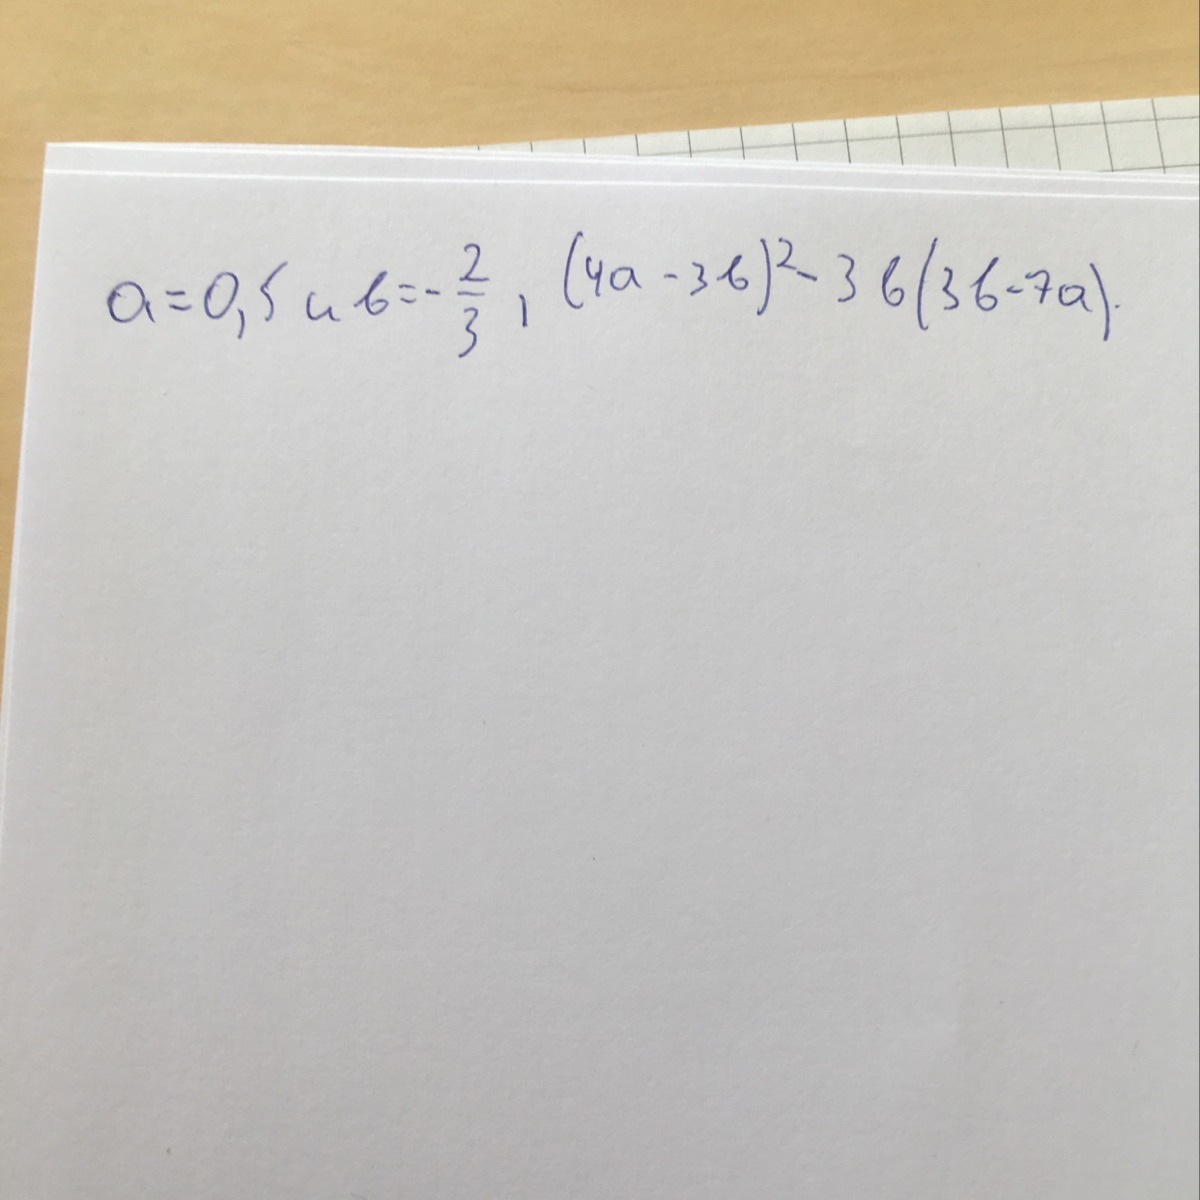 a=0,5 и b=-2/3, (4a-3b)²-3b(3b-7a).